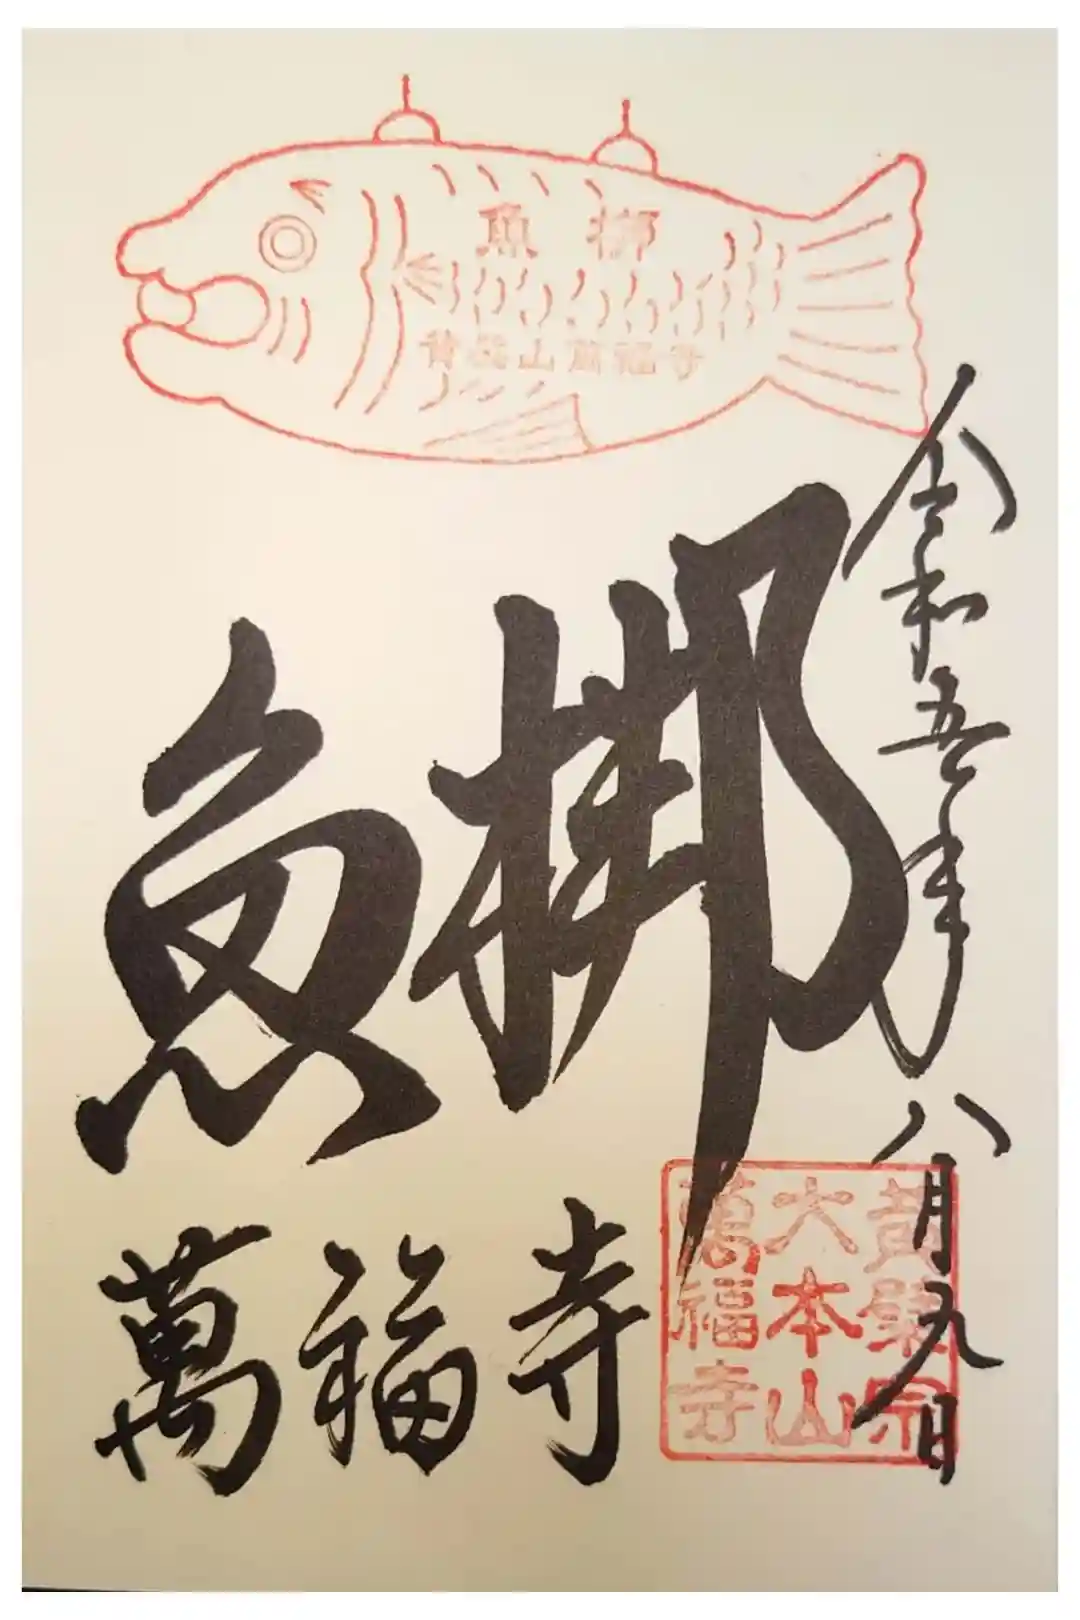 魚梆
黄檗山萬福寺
魚梆
萬福寺
令和五年八月九日
黄檗宗
大本山
萬福寺